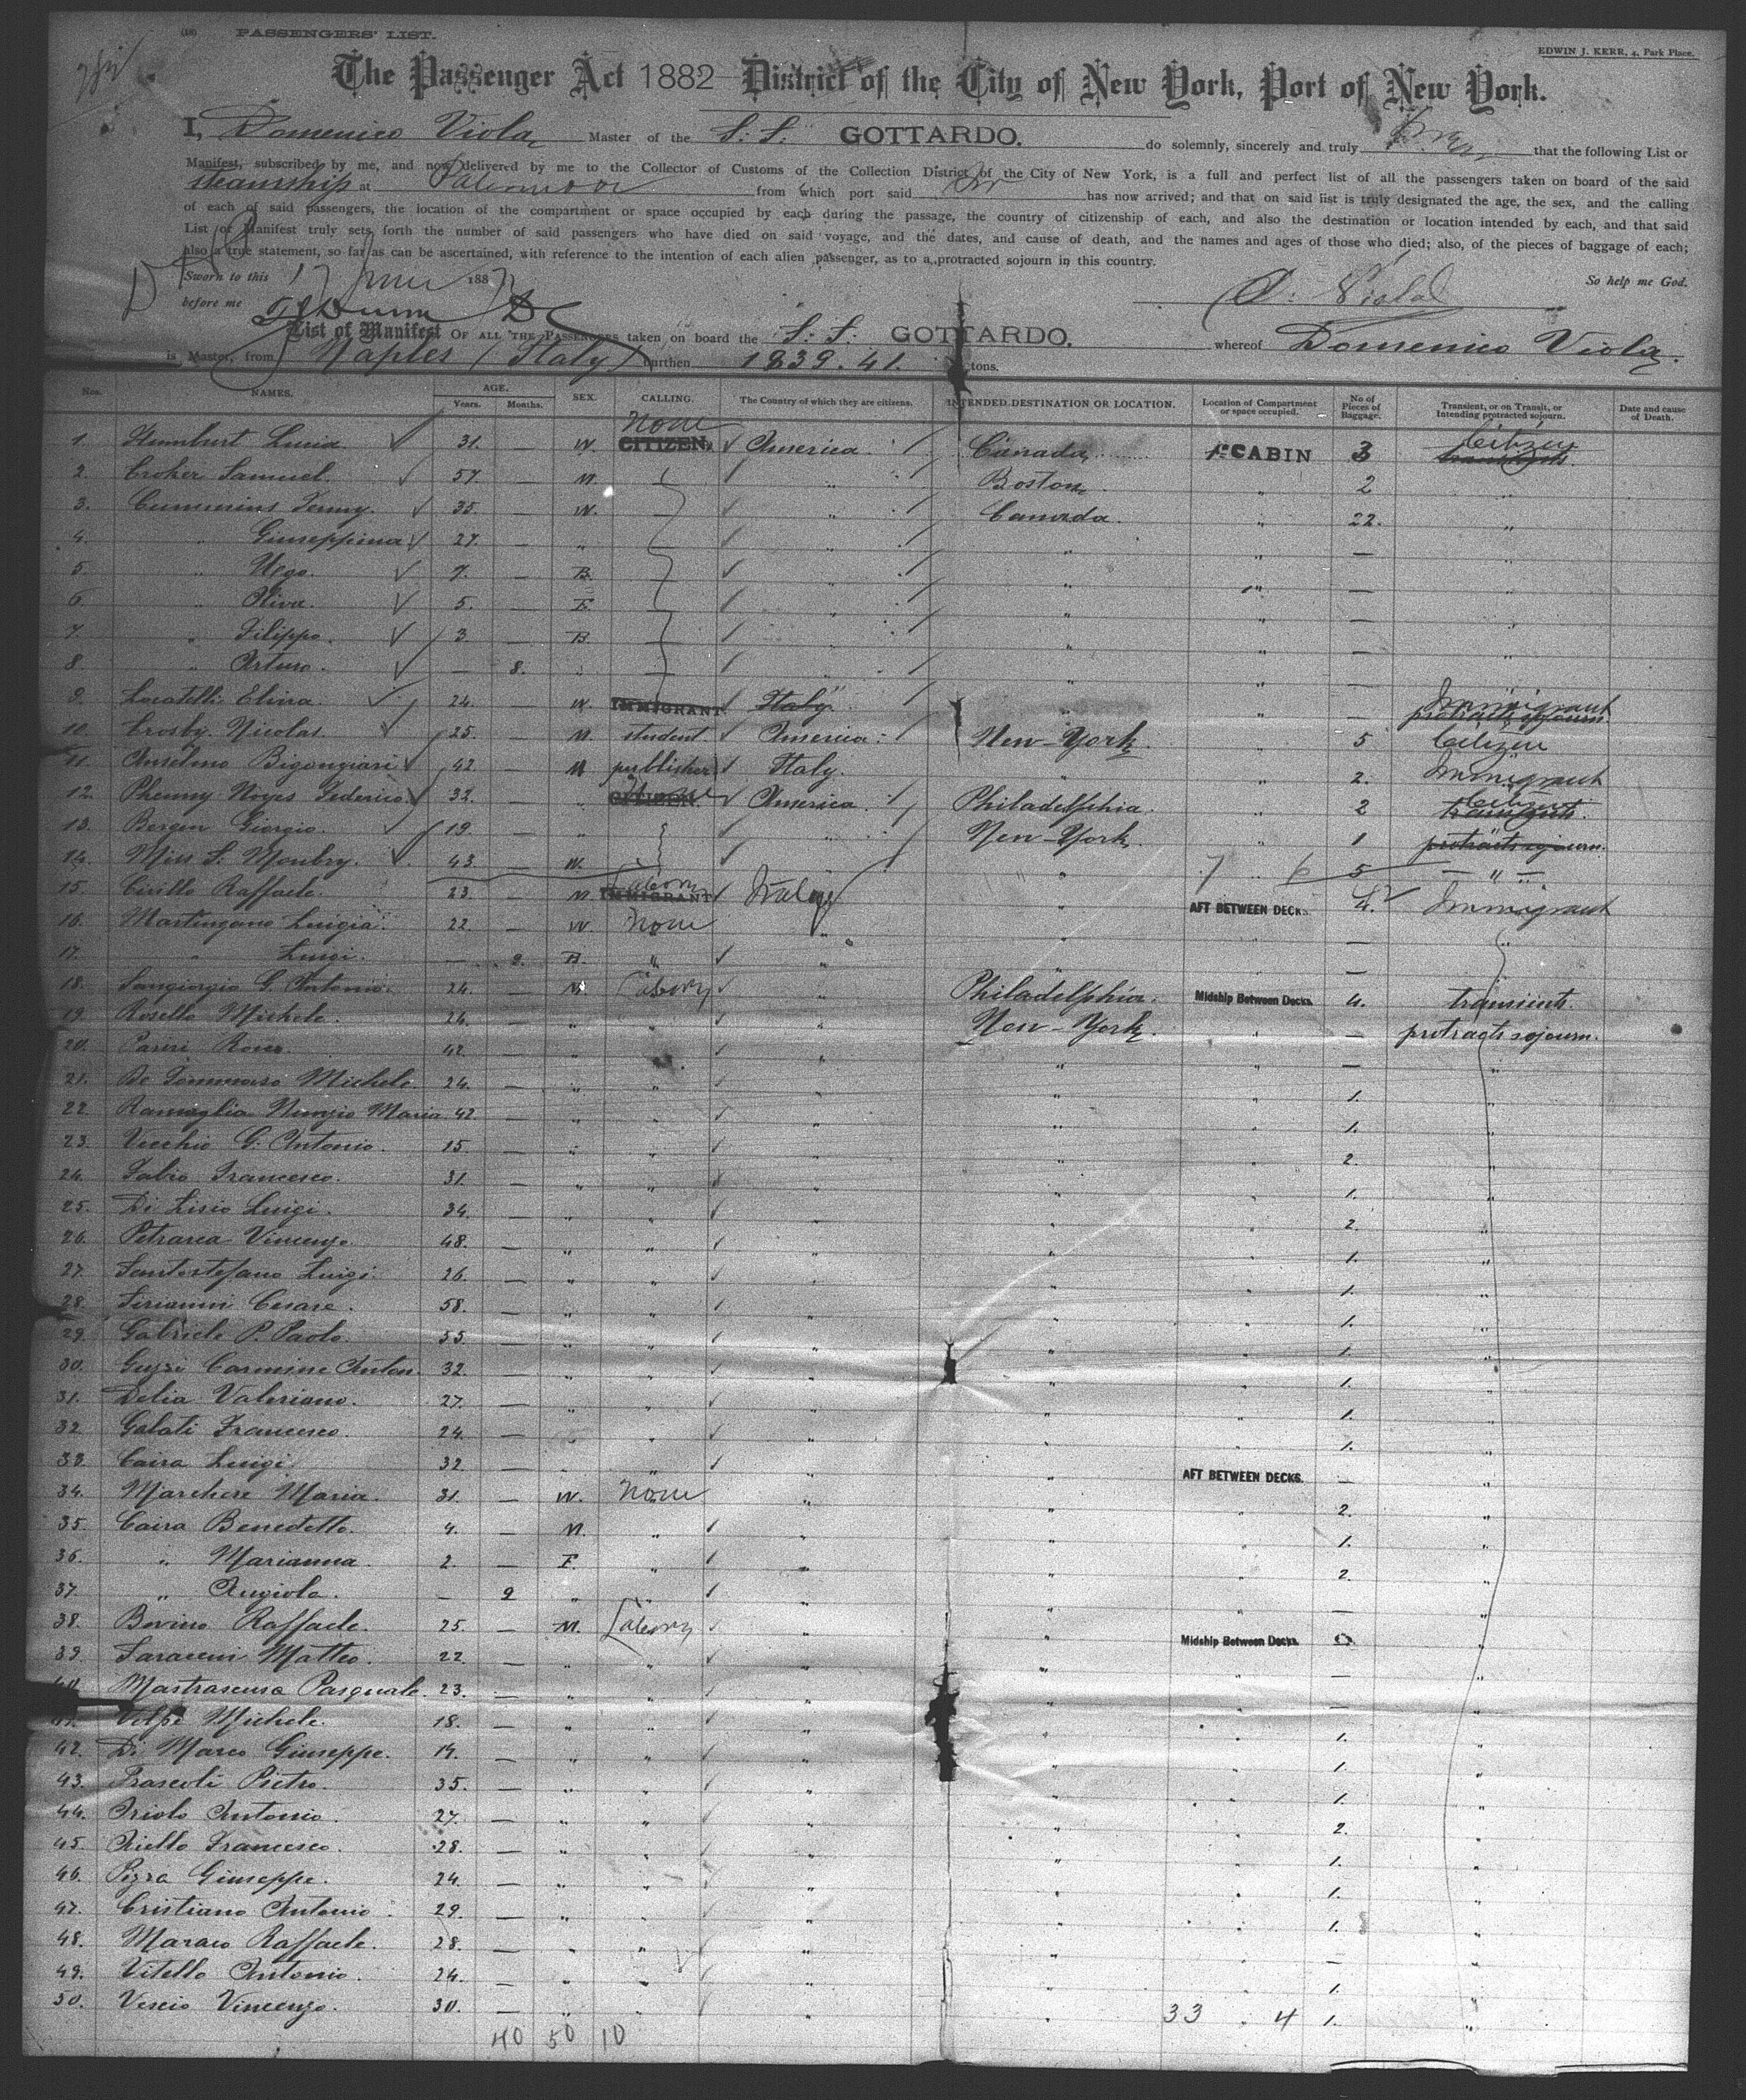 (18) PASSENGERS' LIST.
EDWIN J. KERR, 4, Park Place.
The Passenger Act 1882 District of the City of New York, Port of New York.
I, Domenico Viola Master of the S. S. GOTTARDO. do solemnly, sincerely and truly that the following List or
Manifest, subscribed by me, and now delivered by me to the Collector of Customs of the Collection District of the City of New York, is a full and perfect list of all the passengers taken on board of the said
steamship at from which port said has now arrived; and that on said list is truly designated the age, the sex, and the calling
of each of said passengers, the location of the compartment or space occupied by each during the passage, the country of citizenship of each, and also the destination or location intended by each, and that said
List or Manifest truly sets forth the number of said passengers who have died on said voyage, and the dates, and cause of death, and the names and ages of those who died; also, of the pieces of baggage of each;
also a true statement, so far as can be ascertained, with reference to the intention of each alien passenger, as to a protracted sojourn in this country.
Sworn to this 17 June 1887 So help me God.
before me D. Viola
List of Manifest OF ALL THE PASSENGERS taken on board the S. S. GOTTARDO. whereof Domenico Viola
is Master, from Naples (Italy) burthen 1839.41. tons.
Nos. NAMES. AGE. Years. Months. SEX. CALLING. The Country of which they are citizens. INTENDED DESTINATION OR LOCATION. Location of Compartment or space occupied. No of Pieces of Baggage. Transient, or on Transit, or Intending protracted sojourn. Date and cause of Death.
1. Lucia 31. — W. None CITIZEN. America. Canada 1st CABIN 3 Citizen
2. Croker Samuel. 57. — M. " Boston " 2 "
3. Cummins 35. — W. " Canada. " 22. "
4. " Giuseppina 27. — " " " " — "
5. " Ugo. 7. — B. " " " — "
6. " 5. — F. " " " — "
7. " Filippo. 3 — B. " " " — "
8. " Arturo. — 8. " " " " — "
9. Locatelli Elina. 24. — W. IMMIGRANT Italy " " — Immigrant protracts sojourn
10. Crosby Nicolas. 25. — M. student. America. New-York. " 5 Citizen
11. Anselmo Bigongiari 42. — M publisher Italy. " " 2. Immigrant
12. Federico 32. — " CITIZEN. America. Philadelphia. " 2 Citizen transients.
13. Bergen Giorgio. 19. — " " New-York. " 1 protracts sojourn.
14. Miss S. 43. — W. " " 7 6 5 — " —
15. Cirillo Raffaele. 23 — M Laborer IMMIGRANT Italy " AFT BETWEEN DECKS. 4. Immigrant
16. Luigia. 22 — W None " " — "
17. " Luigi. — 9. B. " " " —
18. Sangiorgio G. Antonio. 24. — M. Laborer " Philadelphia. Midship Between Decks. 4. transients.
19. Rosello Michele. 24. — " " " New-York. — protracts sojourn.
20. Rocco. 42. — " " " " — "
21. De Tommaso Michele 24. — " " " " 1. "
22. Ramaglia Nunzio Maria 42. — " " " " 1. "
23. Vecchio G. Antonio. 15. — " " " " 2. "
24. Fabio Francesco. 31. — " " " " 1. "
25. Di Lisio Luigi. 34. — " " " " 2. "
26. Petrarca Vincenzo 48. — " " " " 1. "
27. Santostefano Luigi. 26. — " " " " 1. "
28. Sirianni Cesare. 58. — " " " " 1. "
29. Gabriele P. Paolo. 55. — " " " " 1. "
30. Guzzi Carmine Anton. 32. — " " " " 1. "
31. Delia Valeriano. 27. — " " " " 1. "
32. Galati Francesco. 24. — " " " " 1. "
33. Caira Luigi 32. — " " " " AFT BETWEEN DECKS. — "
34. Marchese Maria. 31. — W. None " " " 2. "
35. Caira Benedetto. 4. — M. " " " " 1. "
36. " Marianna. 2. — F. " " " " 2. "
37. " Angiola. — 9 " " " " " — "
38. Bovino Raffaele. 25. — M. Laborer " " Midship Between Decks. "
39. Saraceni Matteo. 22. — " " " " " — "
40. Mastrascusa Pasquale. 23. — " " " " " — "
41. Volpe Michele. 18. — " " " " " 1. "
42. Di Marco Giuseppe. 19. — " " " " " 1. "
43. Frascoli Pietro. 35. — " " " " " 1. "
44. Antonio. 27. — " " " " " 2. "
45. Aiello Francesco. 28. — " " " " " 1. "
46. Pizza Giuseppe. 24. — " " " " " 1. "
47. Cristiano Antonio. 29. — " " " " " 1. "
48. Raffaele. 28. — " " " " " — "
49. Vitello Antonio. 24. — " " " " " 1. "
50. Vescio Vincenzo. 30. — " " " " 33 4 1. "
40 50 10